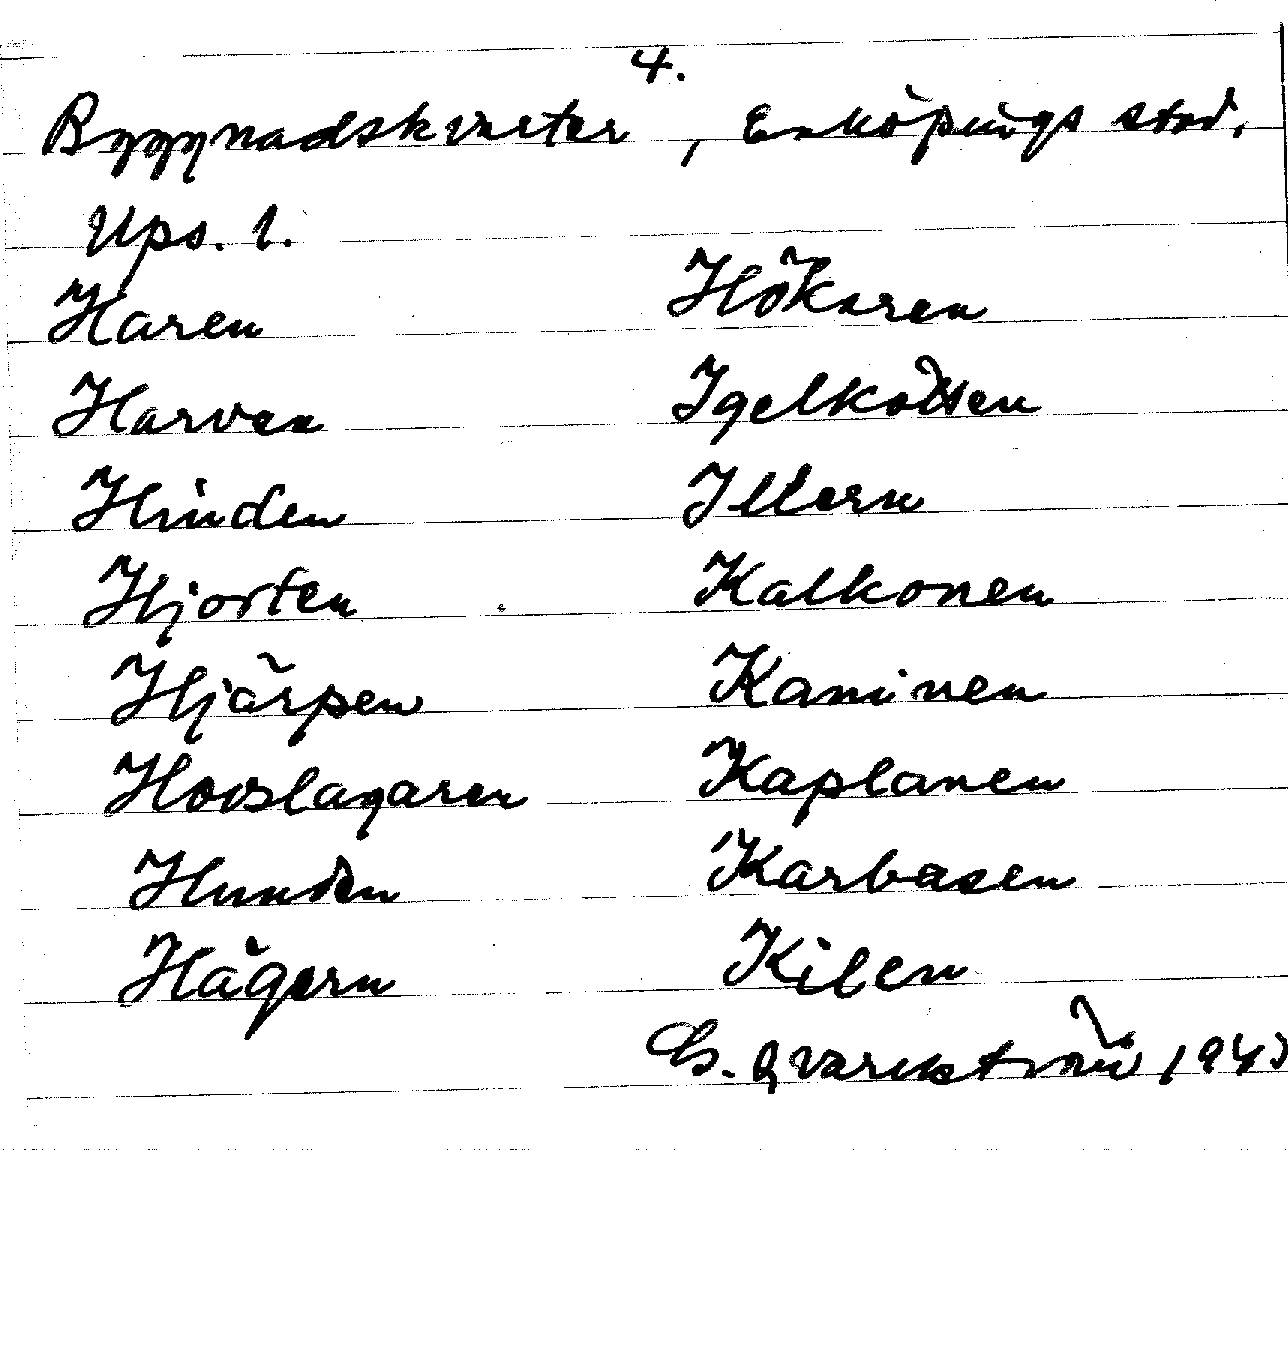 4.
Byggnadskvarter, Enköpings stad.
Ups. l.
Haren
Harven
Hinden
Hjorten
Hjärpen
Hovslagaren
Hunden
Hägern
Hökaren
Igelkotten
Illern
Kalkonen
Kaninen
Kaplanen
Karbasen
Kilen
G. Qvarnström